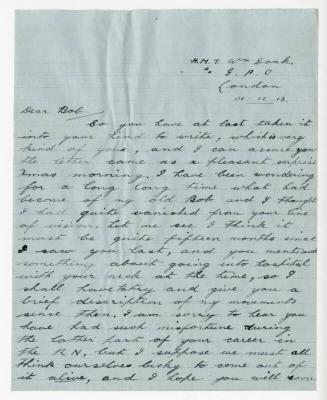 H.M.T. Wm Doak
c/o G.P.O
London
31-12-18.
Dear Bob
So you have at last taken it
into your head to write, which is very
kind of you, and I can assure you
the letter came as a pleasant surprise
Xmas morning. I have been wondering
for a long long time what had
become of my old Bob and I thought
I had quite vanished from your line
of vision. Let me see I think it
must be quite fifteen months since
I saw you last, and you mentioned
something about going into hospital
with your neck at the time, so I
shall have to try and give you a
brief discription of my movements
since then. I am sorry to hear you
have had such misfortune during
the latter part of your career in
the R.N, but I suppose we must all
think ourselves lucky to come out of
it alive, and I hope you will soon